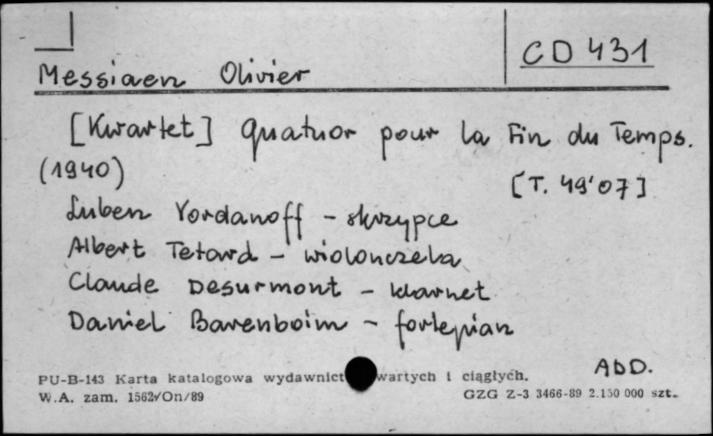 CD 431
Messiaen Olivier
[Kwartet] Quatuor pour la Fin du Temps.
(1940)
[T. 49'07]
Luben Yordanoff - skrzypce
Albert Tetard - wiolonczela
Claude Desurmont - klarnet
Daniel Barenboim - fortepian
ADD.
PU-B-143 Karta katalogowa wydawnict wartych i ciągłych.
W.A. zam. 1562/On/89 GZG Z-3 3466-89 2.150 000 szt.